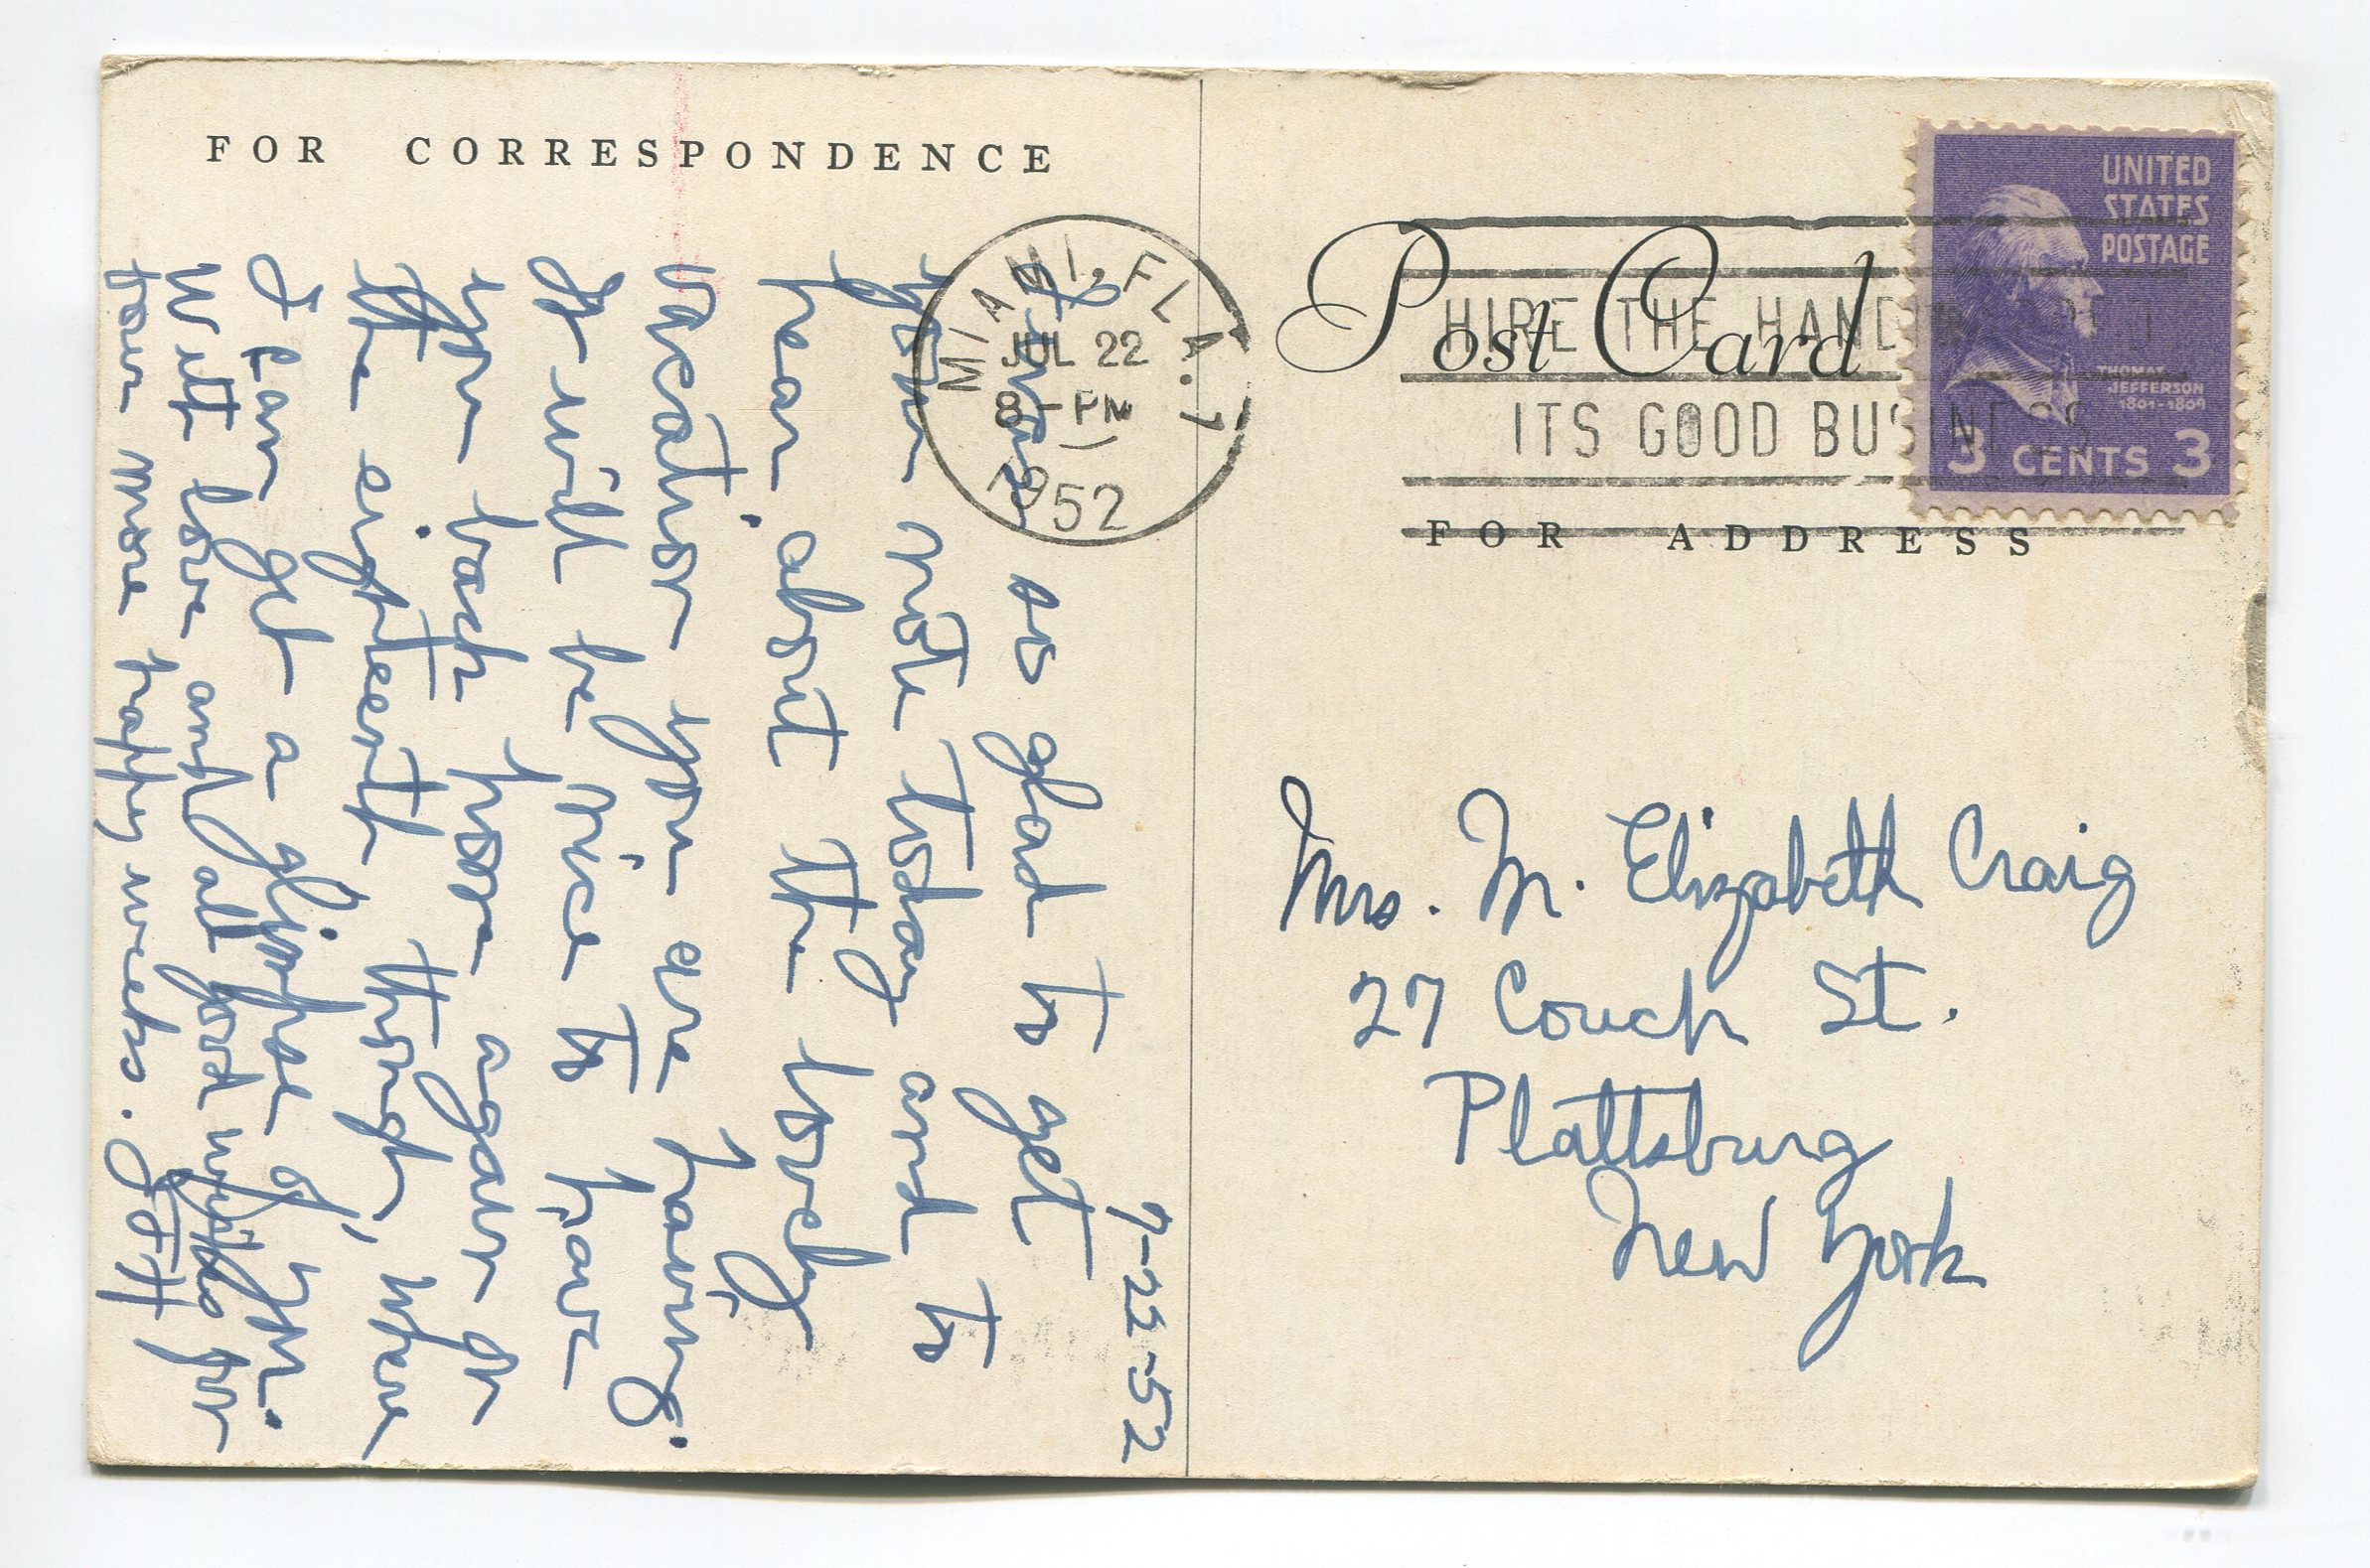 FOR CORRESPONDENCE
7-22-52
I was so glad to get
your note today and to
hear about the lovely
vacation you are having.
It will be nice to have
you back home again on
the eighteenth though, where
I can get a glimpse of you.
With love and all good wishes for
four more happy weeks.
MIAMI, FLA.
JUL 22
8-PM
1952
Post Card
HIRE THE HANDICAPPED
ITS GOOD BUSINESS
UNITED
STATES
POSTAGE
THOMAS
JEFFERSON
1801-1809
3 CENTS 3
FOR ADDRESS
Mrs. M. Elizabeth Craig
27 Couch St.
Plattsburg
New York